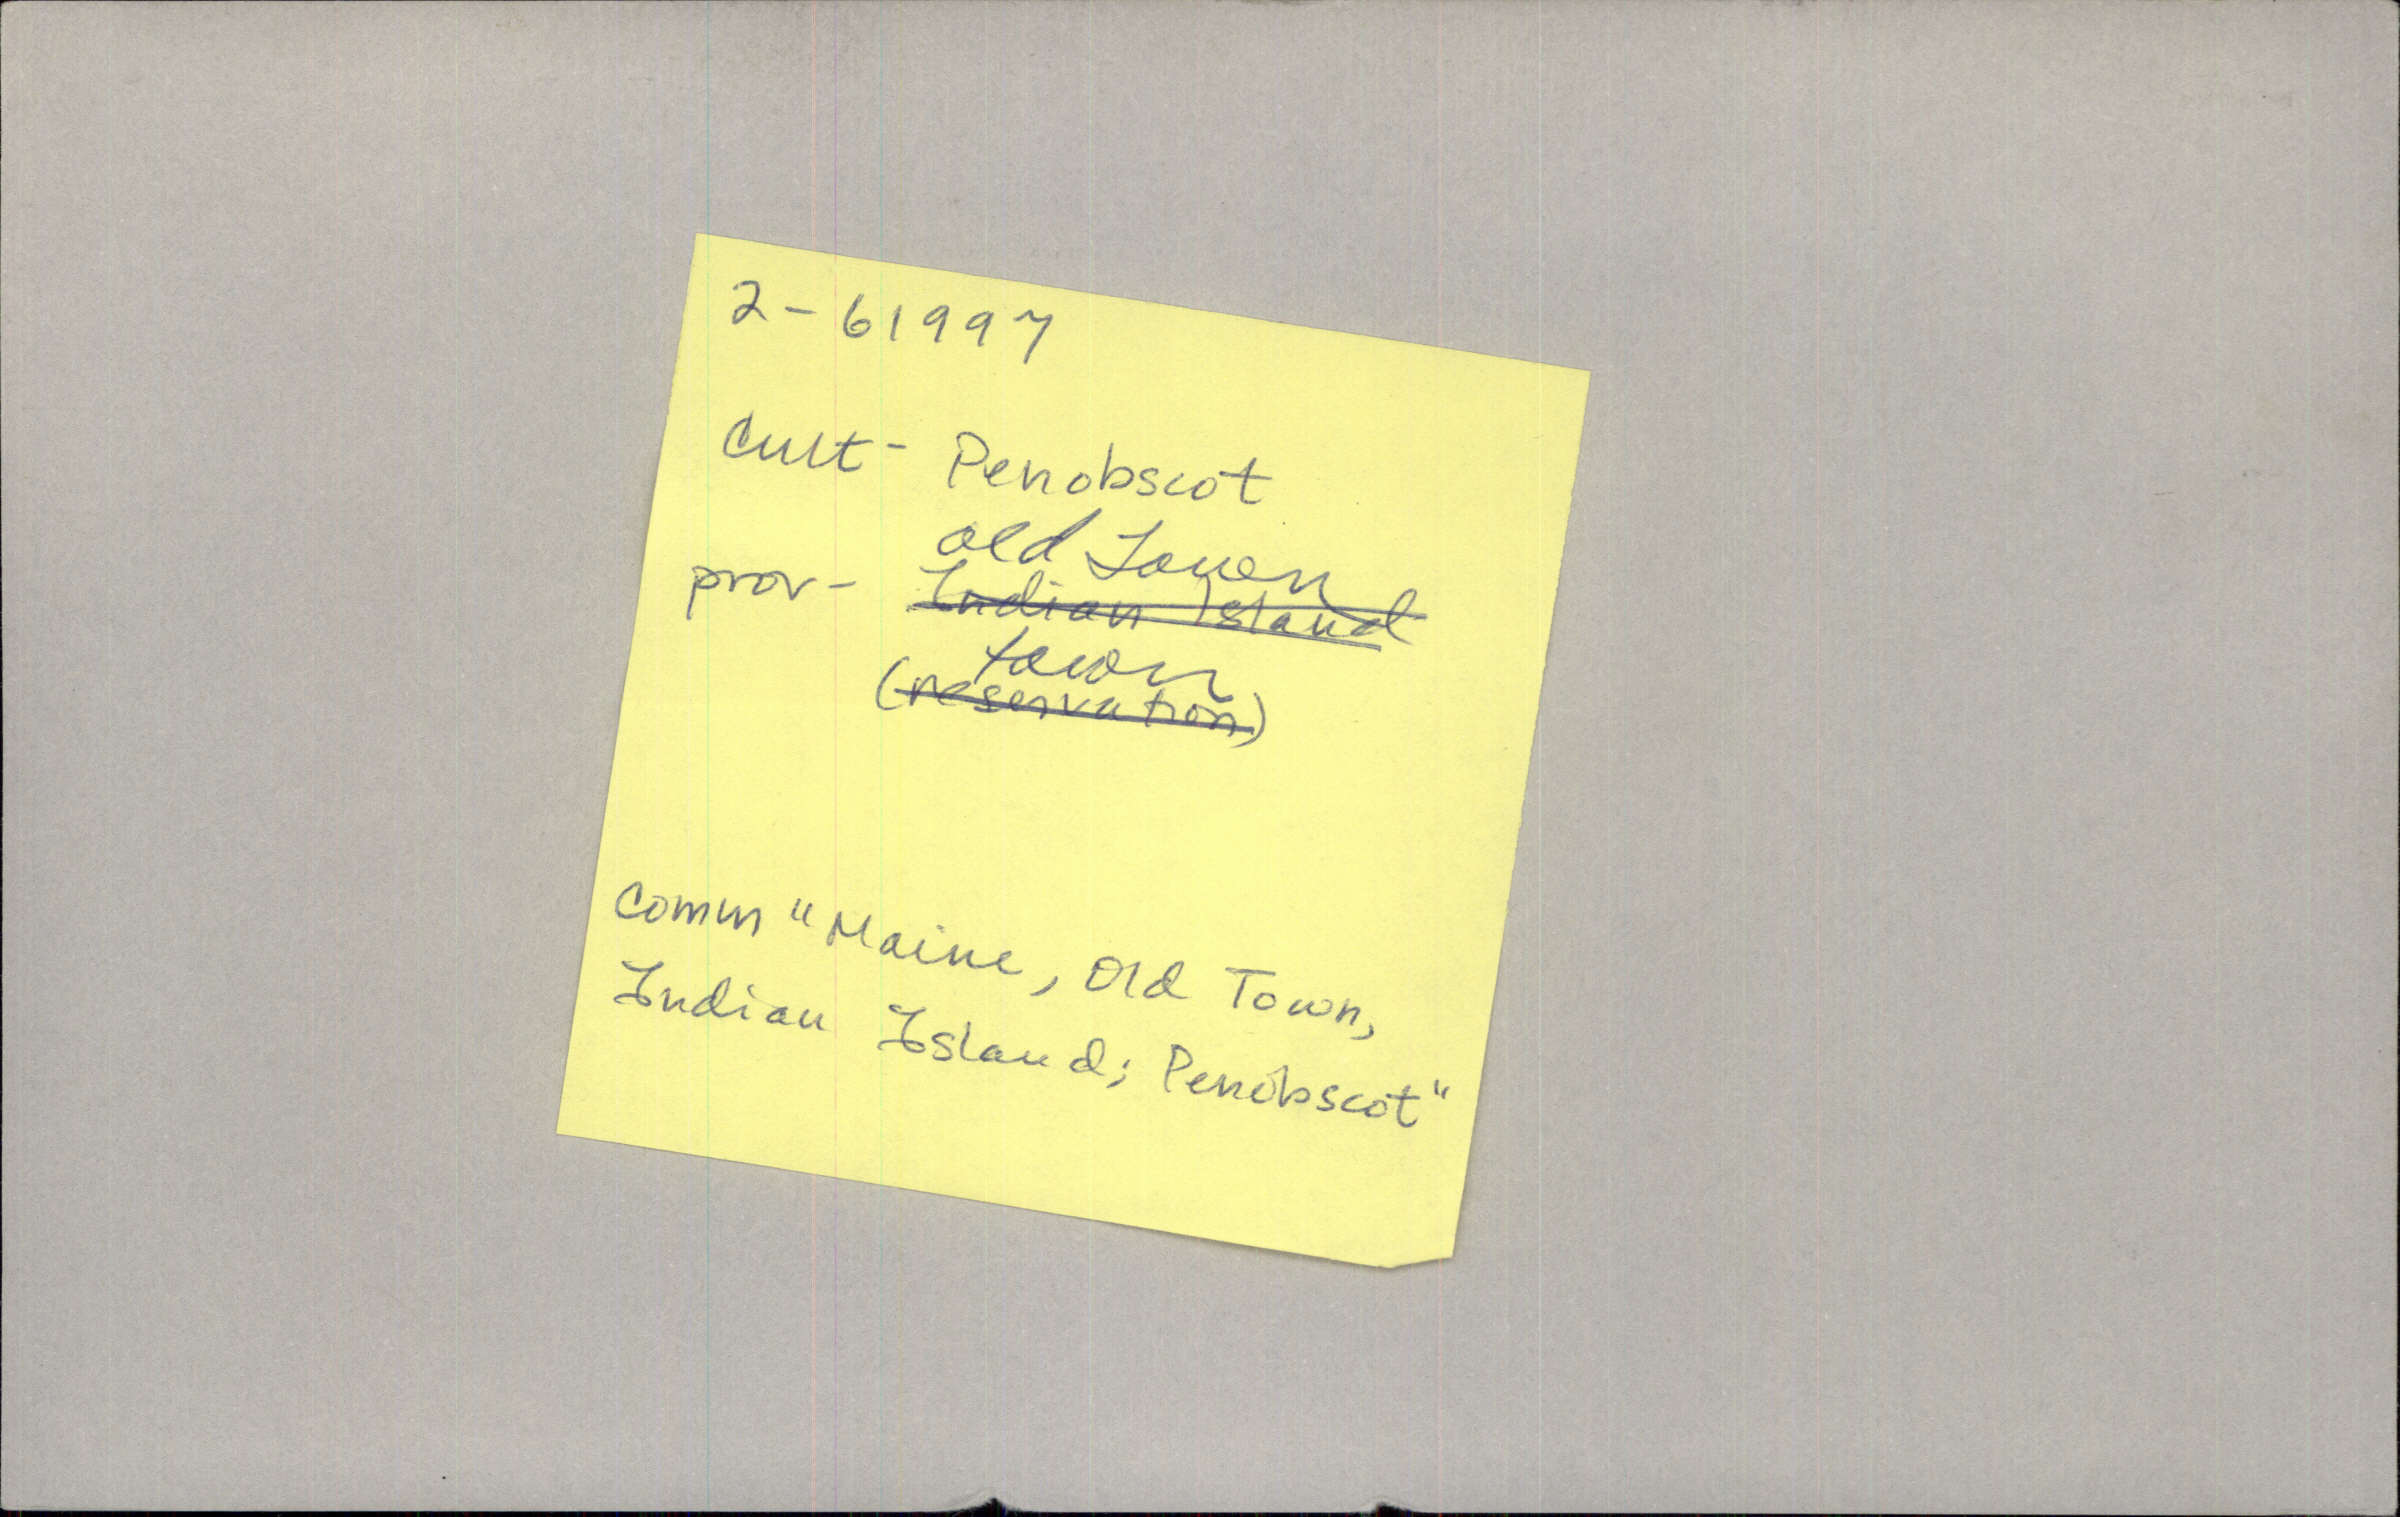 2-61997
cult- Penobscot
old Town
prov- Indian Island
town
(reservation)
comm "Maine, Old Town,
Indian Island; Penobscot"